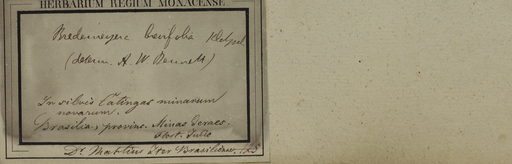 HERBARIUM REGIUM MONACENSE.
Bredemeyera
(determ. A. W. Bennett)
In silvis Catingas minarum
novarum.
Brasilia, provinc. Minas Geraes.
Flor. Julio
Dr. Martius Iter Brasiliense.